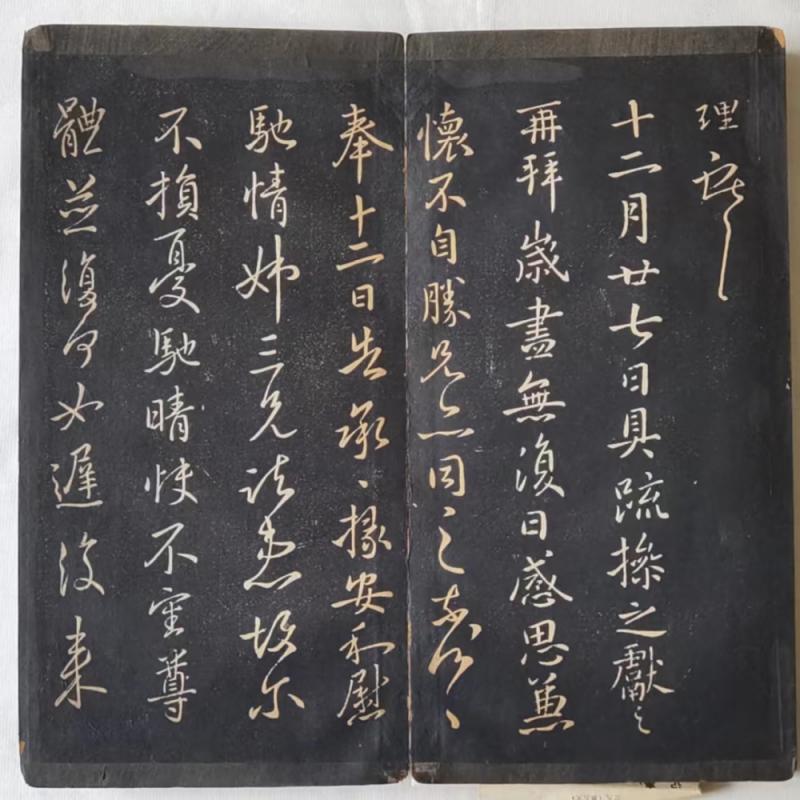 理
十二月廿七日具疏操之獻之
再拜歲盡無復日感思兼
懷不自勝兄亦同之
奉十二日告承〻掾安和慰
馳情姊三兄諸患故尓
不損憂馳晴快不審尊
體並復何如遲復来